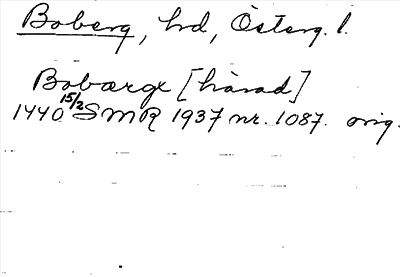 Boberg, hd, Österg. l.
Bobærgx [hærad]
1440 15/2 SMR 1937 nr. 1087. orig.